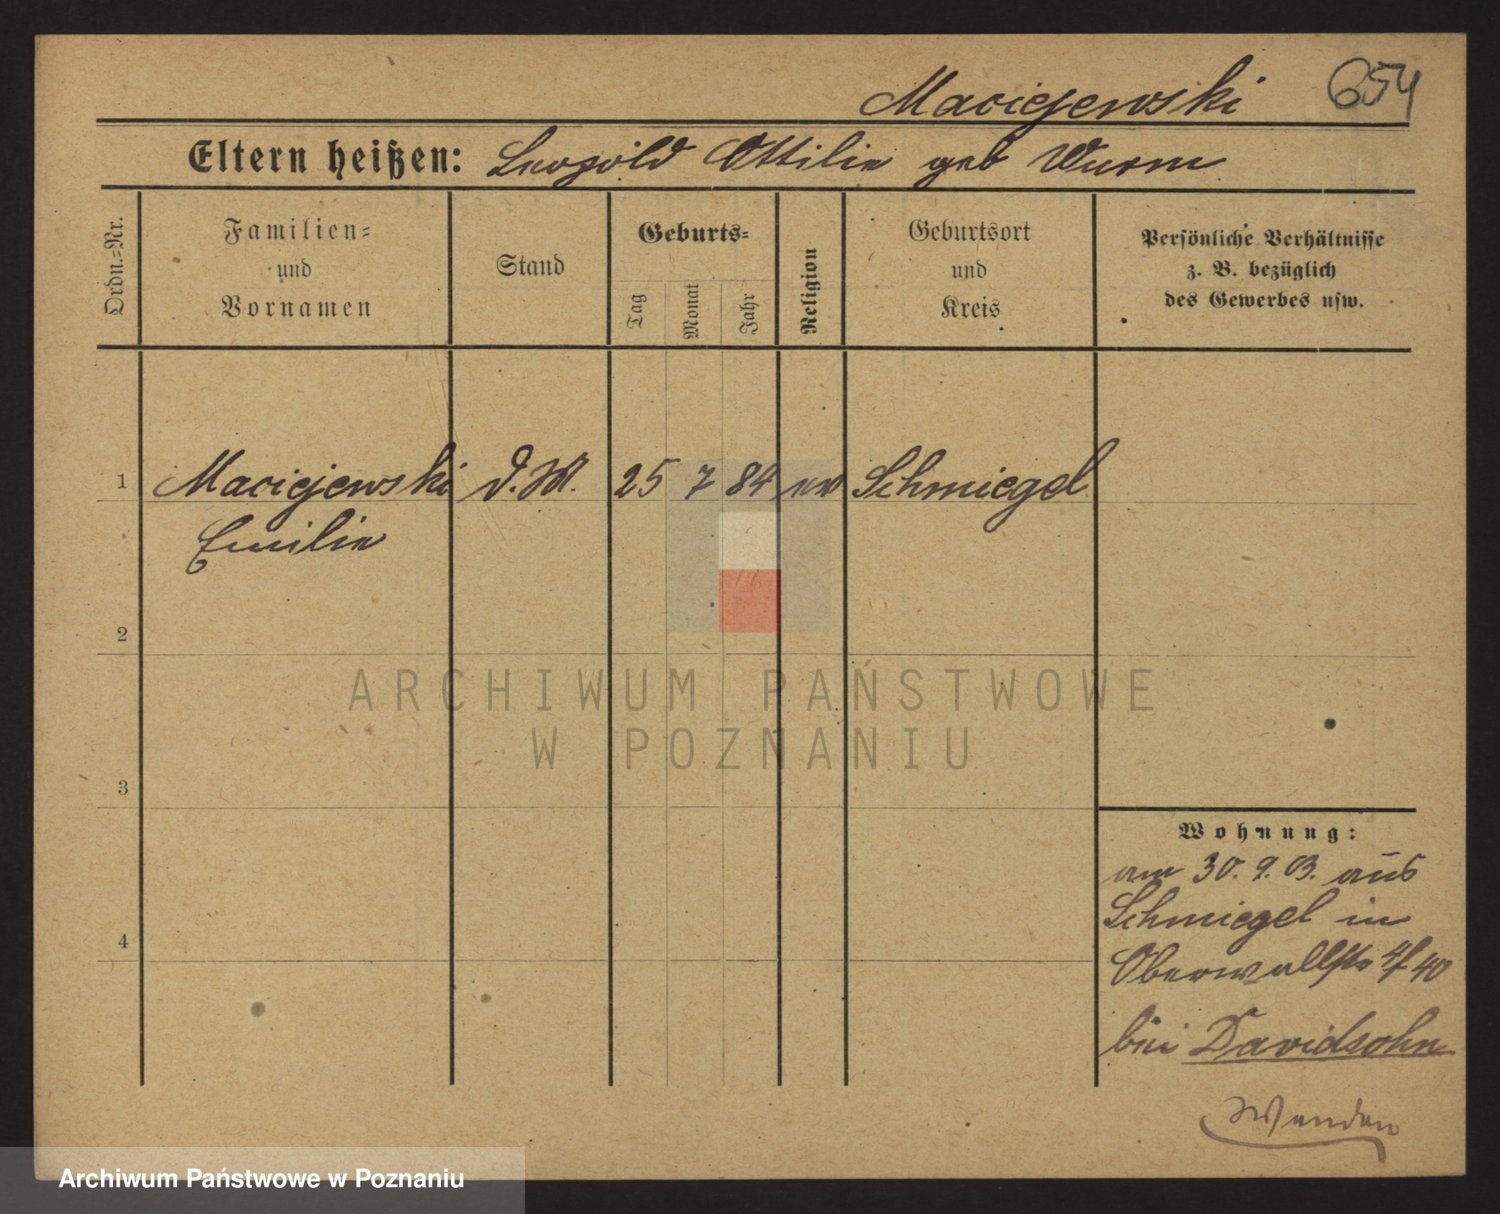 Maciejewski 654
Eltern heißen: Leopold Ottilie geb Wurm
Ordn.=Nr.
Familien=
und
Vornamen
Stand
Geburts=
Tag
Monat
Jahr
Religion
Geburtsort
und
Kreis
Persönliche Verhältnisse
z. B. bezüglich
des Gewerbes usw.
1 Maciejewski d. M. 25 7 84 ev Schmiegel
Emilie
2
3
4
Wohnung:
am 30. 9. 03. aus
Schmiegel in
Oberwallstr 4/40
bei Davidsohn
Wenden
ARCHIWUM PAŃSTWOWE
W POZNANIU
Archiwum Państwowe w Poznaniu